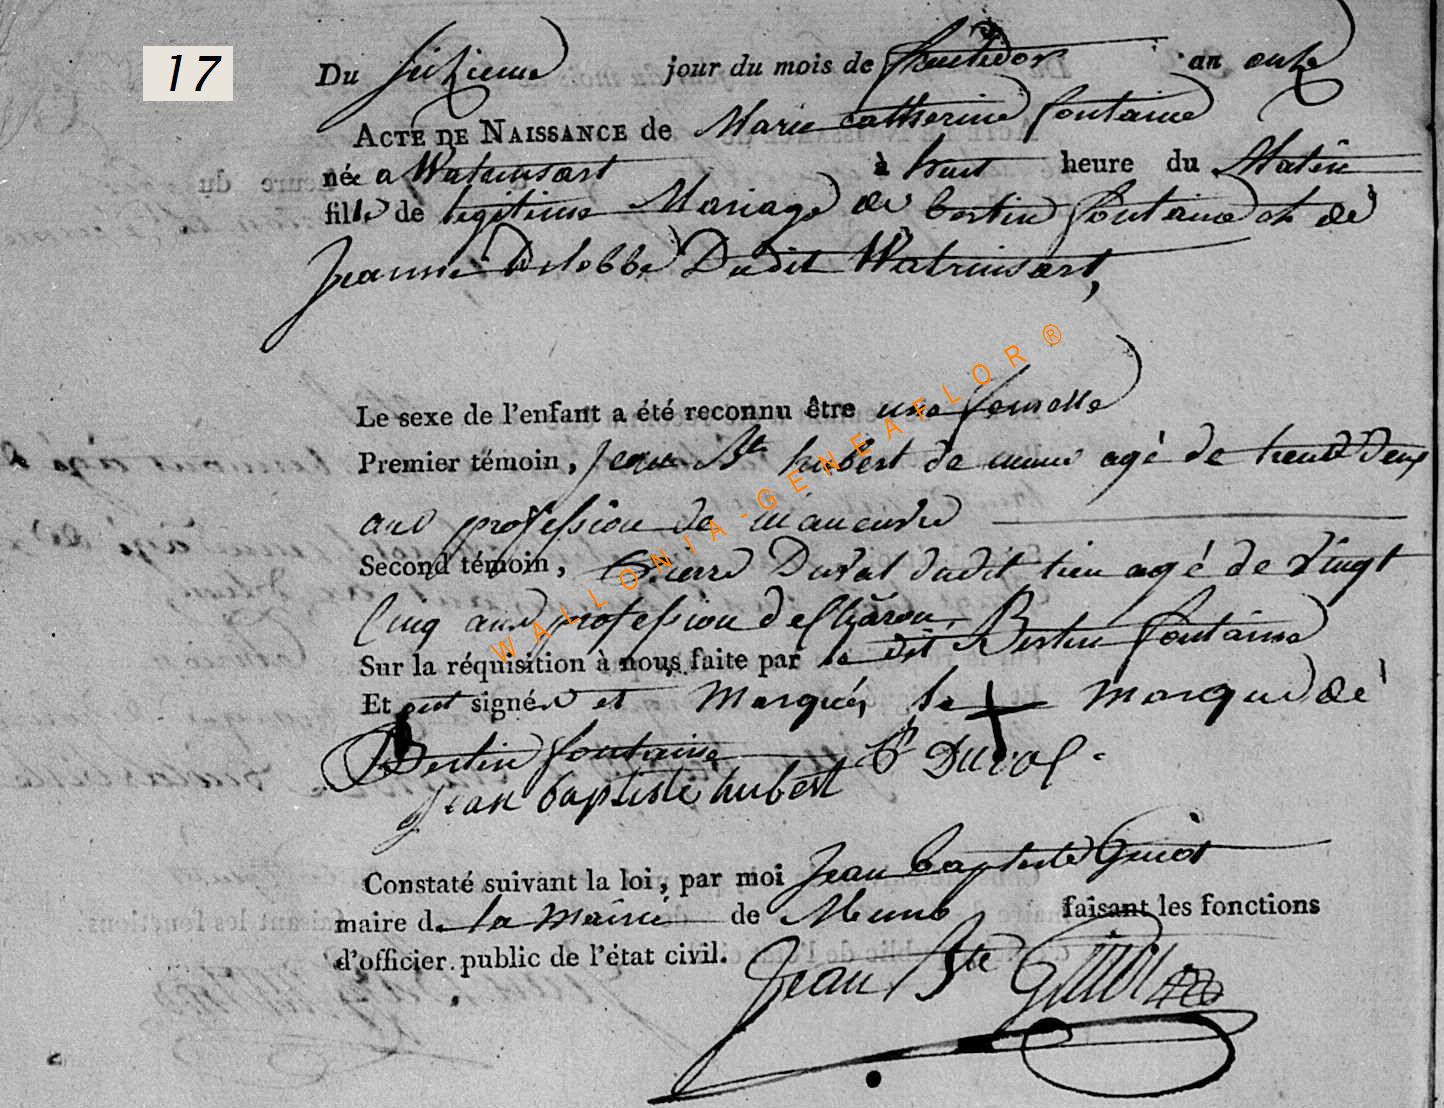 17
Du seizieme jour du mois de fructidor an onze
ACTE DE NAISSANCE de Marie catherine fontaine
née a Watrinsart à huit heure du Matin
fille de legitime Mariage de bertin fontaine et de
Jeanne Delobbe Dudit Watrinsart,
Le sexe de l'enfant a été reconnu être une femelle
Premier témoin, jean Bte hubert de muno agé de trente Deux
ans profession de manœuvre
Second témoin, Pierre Duval dudit lieu agé de vingt
Cinq ans profession de Charon,
Sur la réquisition à nous faite par le dit Bertin fontaine
Et ont signés et Marqués la marque de
Bertin fontaine P Duval
jean baptiste hubert
Constaté suivant la loi, par moi Jean baptiste Guiot
maire de la Mairie de Muno faisant les fonctions
d'officier public de l'état civil. Jean Bte Guiot
WALLONIA-GENEAFLOR®